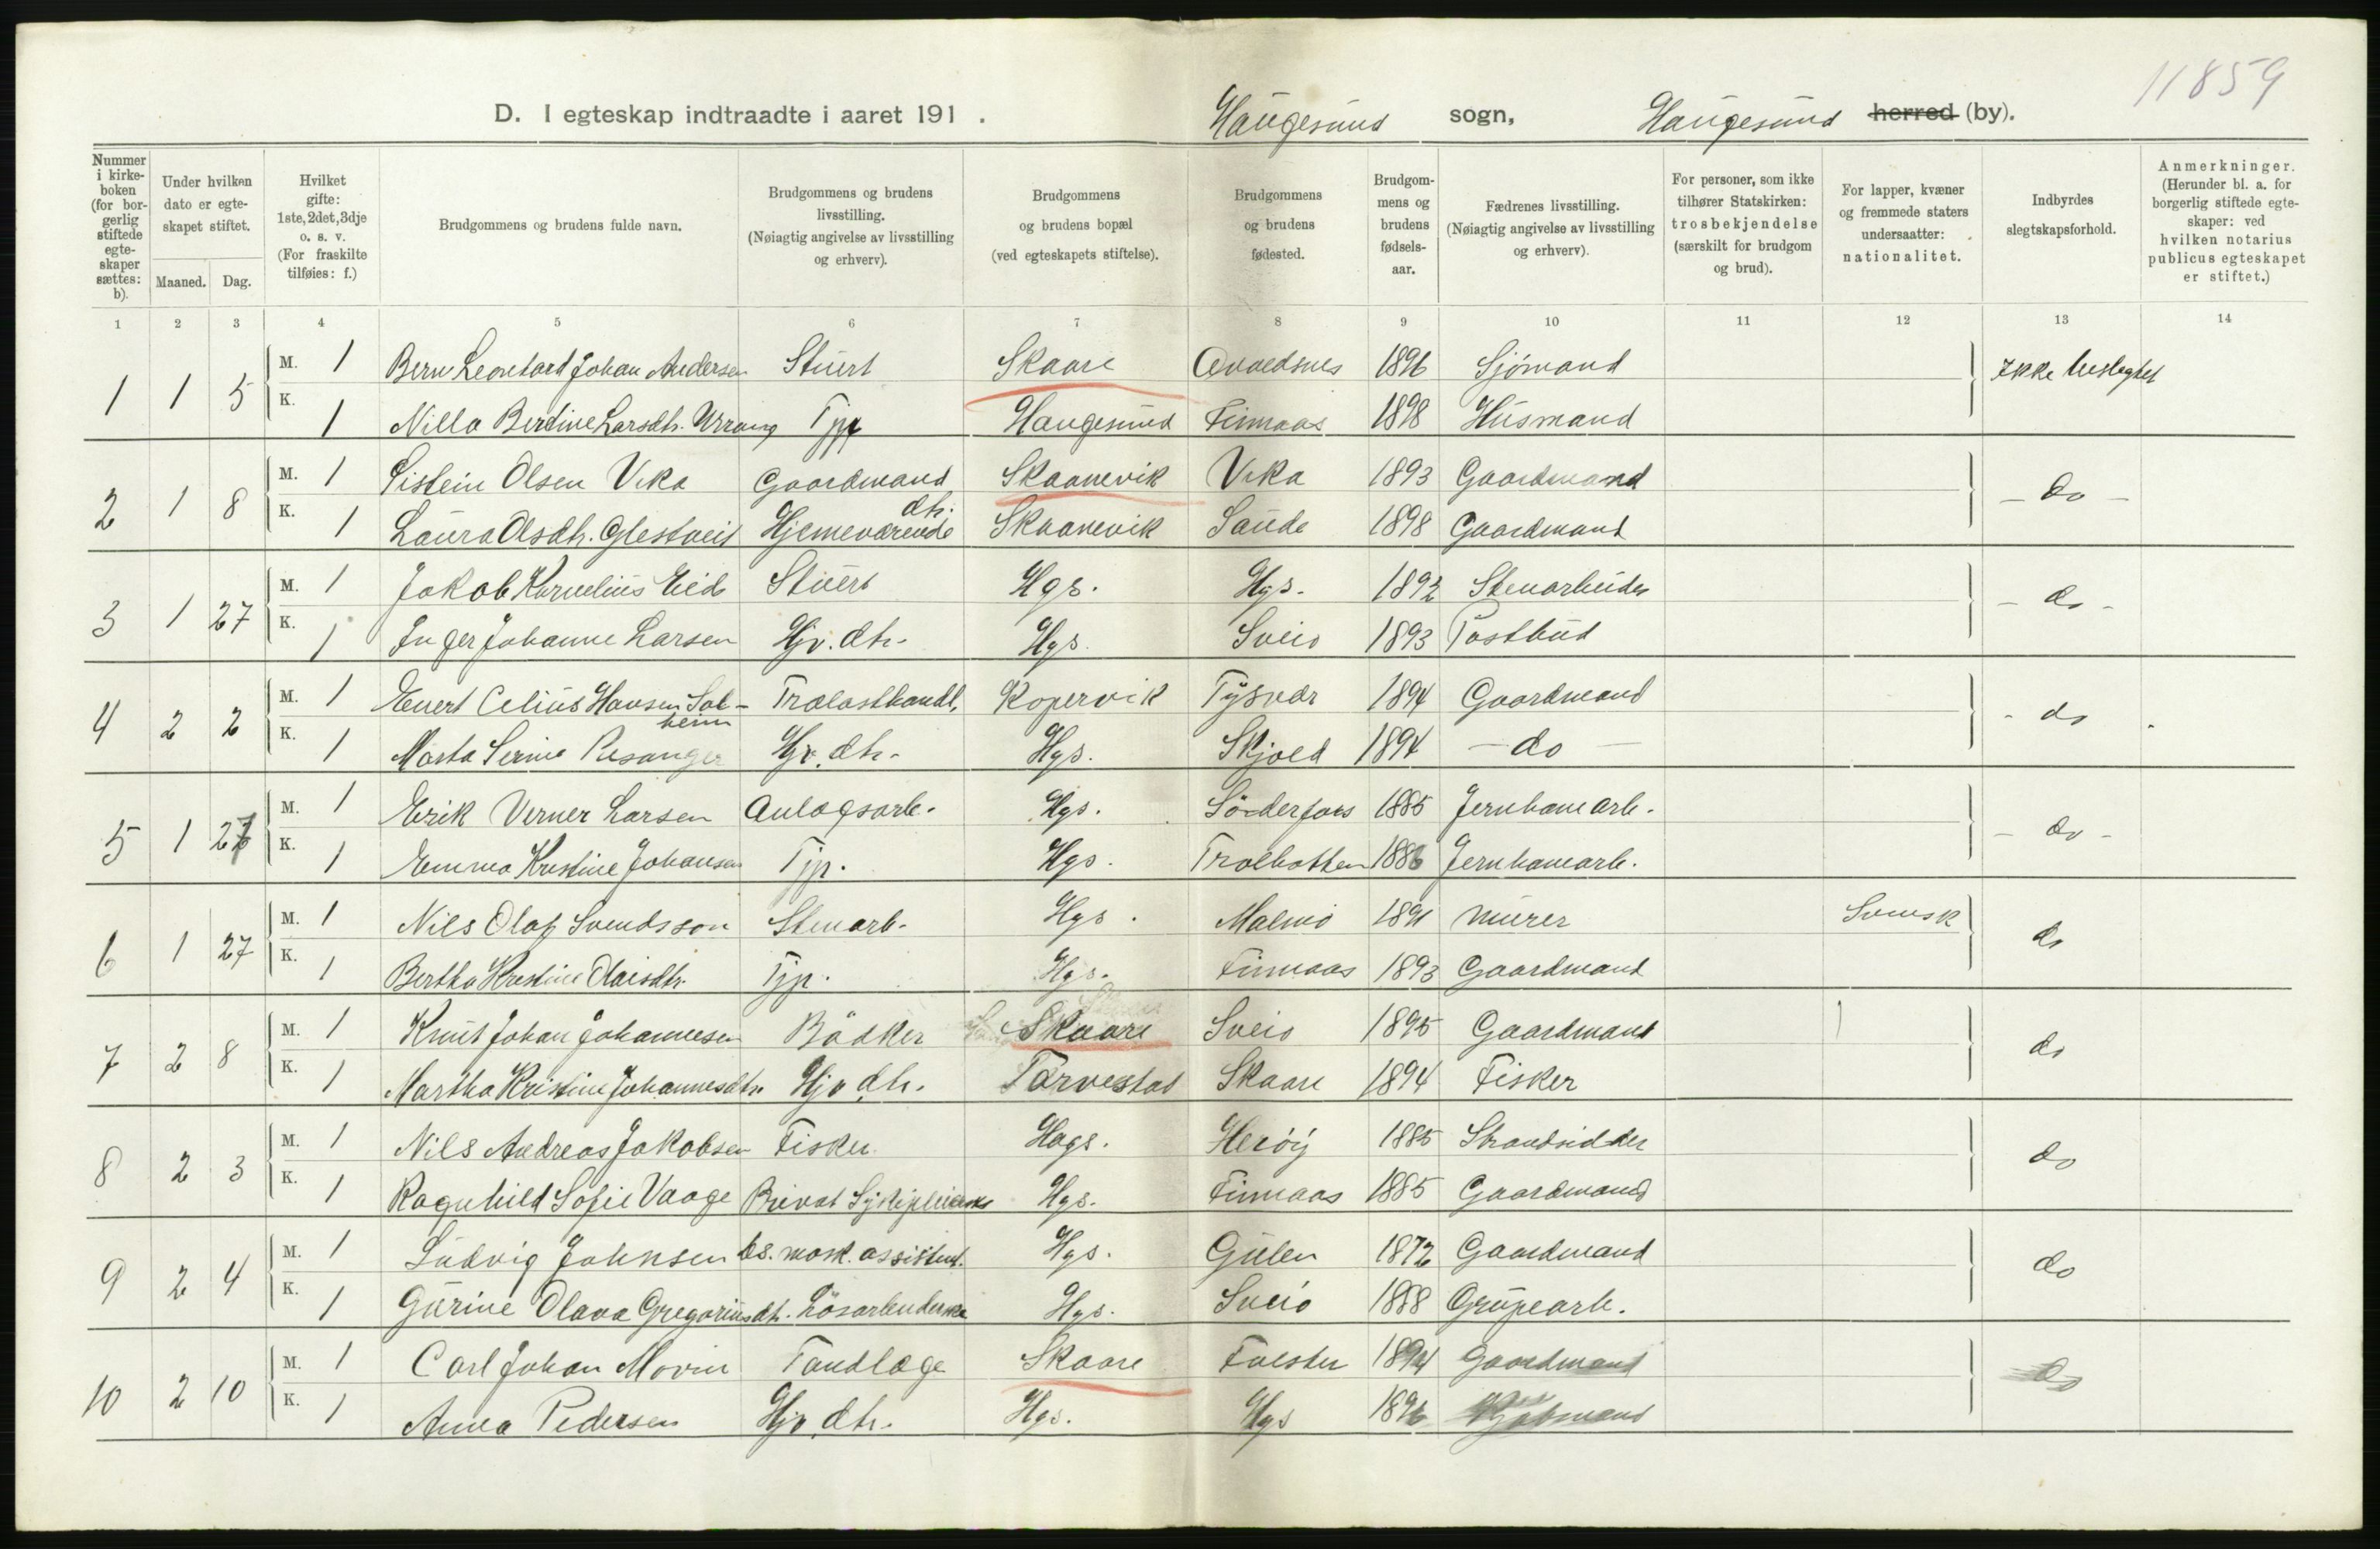 11859
D. I egteskap indtraadte i aaret 191 . Haugesund sogn, Haugesund herred (by).
Nummer i kirkeboken (for borgerlig stiftede egteskaper sættes: b).
Under hvilken dato er egteskapet stiftet.
Maaned. Dag.
Hvilket gifte: 1ste, 2det, 3dje o. s. v. (For fraskilte tilføies: f.)
Brudgommens og brudens fulde navn.
Brudgommens og brudens livsstilling. (Nøiagtig angivelse av livsstilling og erhverv).
Brudgommens og brudens bopæl (ved egteskapets stiftelse).
Brudgommens og brudens fødested.
Brudgommens og brudens fødselsaar.
Fædrenes livsstilling. (Nøiagtig angivelse av livsstilling og erhverv).
For personer, som ikke tilhører Statskirken: trosbekjendelse (særskilt for brudgom og brud).
For lapper, kvæner og fremmede staters undersaatter: nationalitet.
Indbyrdes slegtskapsforhold.
Anmerkninger. (Herunder bl. a. for borgerlig stiftede egteskaper: ved hvilken notarius publicus egteskapet er stiftet.)
1 2 3 4 5 6 7 8 9 10 11 12 13 14
1 1 5 M. 1 Bern Leonhard Johan Andersen Stuert Skaare Avaldsnes 1896 Sjømand Ikke beslegtet
K. 1 Nilla Berdine Larsdtr. Urrang Tjp Haugesund Finnaas 1898 Husmand
2 1 8 M. 1 Sistein Olsen Vika Gaardmand Skaanevik Vika 1893 Gaardmand - do -
K. 1 Laura Olsdtr. Glestveit Hjemeværende dtr. Skaanevik Saude 1898 Gaardmand
3 1 27 M. 1 Jakob Kornelius Eide Stuert Hgs. Hgs. 1892 Stenarbeider - do -
K. 1 Inger Johanne Larsen Hjv. dtr. Hgs. Sveio 1893 Postbud
4 2 2 M. 1 Evert Celius Hansen Solheim Trælasthandl. Kopervik Tysvær 1894 Gaardmand - do
K. 1 Marta Serine Risanger Hjv. dtr. Hgs. Skjold 1894 - do -
5 1 27 M. 1 Erik Verner Larsen Anlægsarb. Hgs. Söderfors 1885 Jernbanearb. - do -
K. 1 Emma Kristine Johansen Tjp. Hgs. Trolhatten 1886 Jernbanearb.
6 1 27 M. 1 Nils Olaf Svendsson Stenarb. Hgs. Malmö 1891 Murer Svensk do
K. 1 Bertha Kristine Olaisdtr. Tjp. Hgs. Finnaas 1893 Gaardmand
7 2 8 M. 1 Knut Johan Johannesen Bödker Skaare Sveio 1895 Gaardmand do
K. 1 Martha Kristine Johannesdtr. Hjv. dtr. Torvestad Skaare 1894 Fisker
8 2 3 M. 1 Nils Andreas Jakobsen Fisker Hags. Herøy 1885 Strandsidder do
K. 1 Ragnhild Sofie Vaage Privat Sykepleierske Hgs. Finnaas 1885 Gaardmand
9 2 4 M. 1 Ludvig Johnsen ds. mask. assistent. Hgs. Gulen 1872 Gaardmand do
K. 1 Gurine Olava Gregoriusdtr. Løsarbeiderske Hgs. Sveio 1888 Grubearb.
10 2 10 M. 1 Carl Johan Movin Tandlæge Skaare 1894 Gaardmand do
K. 1 Anna Pedersen Hjv. dtr. Hgs. Hgs 1896